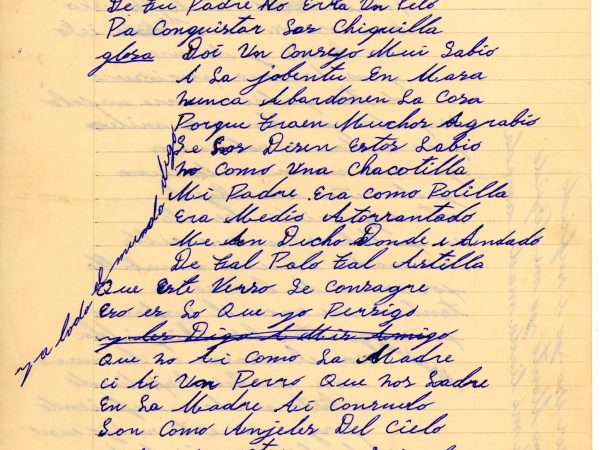 De Tu Padre No Erra Un Pelo
Pa Conquistar Las Chiquilla
glosa Doi Un Consejo Mui Sabio
A La jobentu En Masa
Nunca Abandonen La Casa
Porque Traen Muchos Agrabio
Se Los Disen Estos Sabio
No Como Una Chacotilla
Mi Padre Era Como Polilla
Era Medio Atorrantado
Me An Dicho Donde e Andado
De Tal Palo Tal Astilla
Que Este Verso Se Consagre
Eso es Lo Que yo Persigo
y les Digo A Mis Amigo
y a todo el mundo digo
Que no Ai Como La Madre
ci Ai Un Perro Que nos Ladre
En La Madre Ai Consuelo
Son Como Anjeles Del Cielo